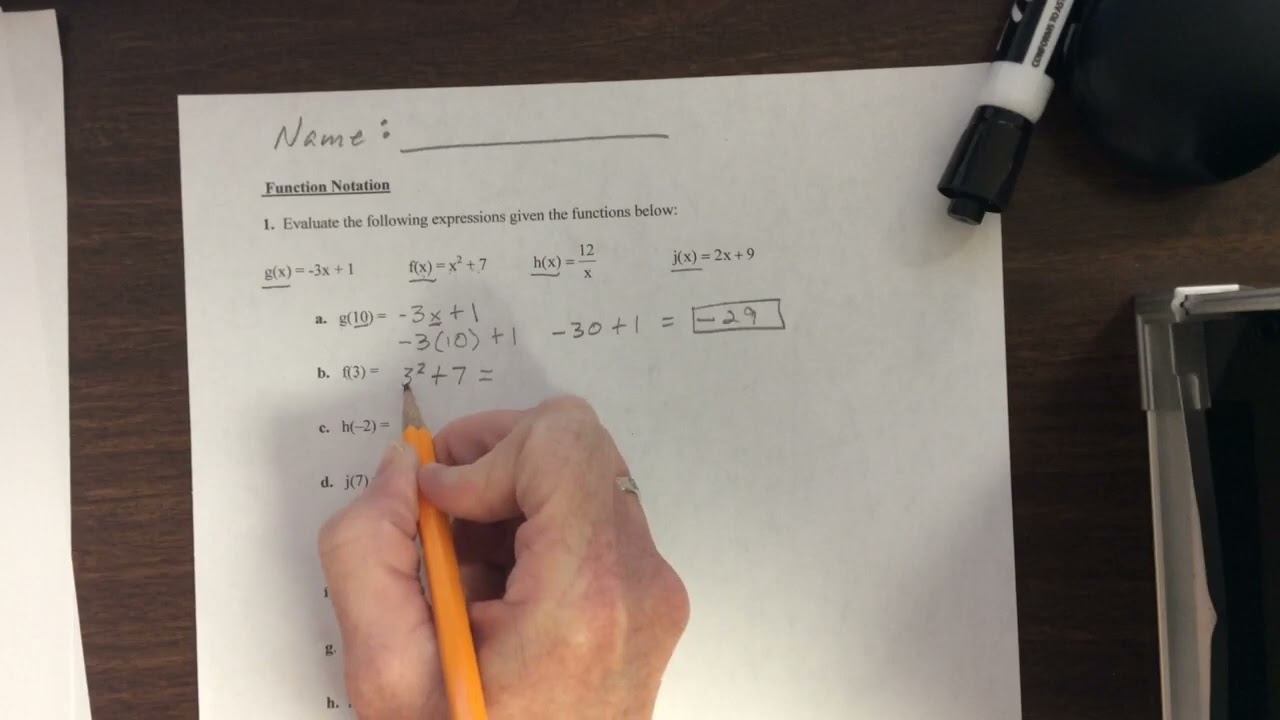 Name:
Function Notation
1. Evaluate the following expressions given the functions below:
g(x) = -3x + 1 f(x) = x² + 7 h(x) = 12/x j(x) = 2x + 9
a. g(10) = -3x + 1
-3(10) + 1 -30 + 1 = -29
b. f(3) = 3² + 7 =
c. h(–2) =
d. j(7)
g.
h.
CONFORMS TO AS